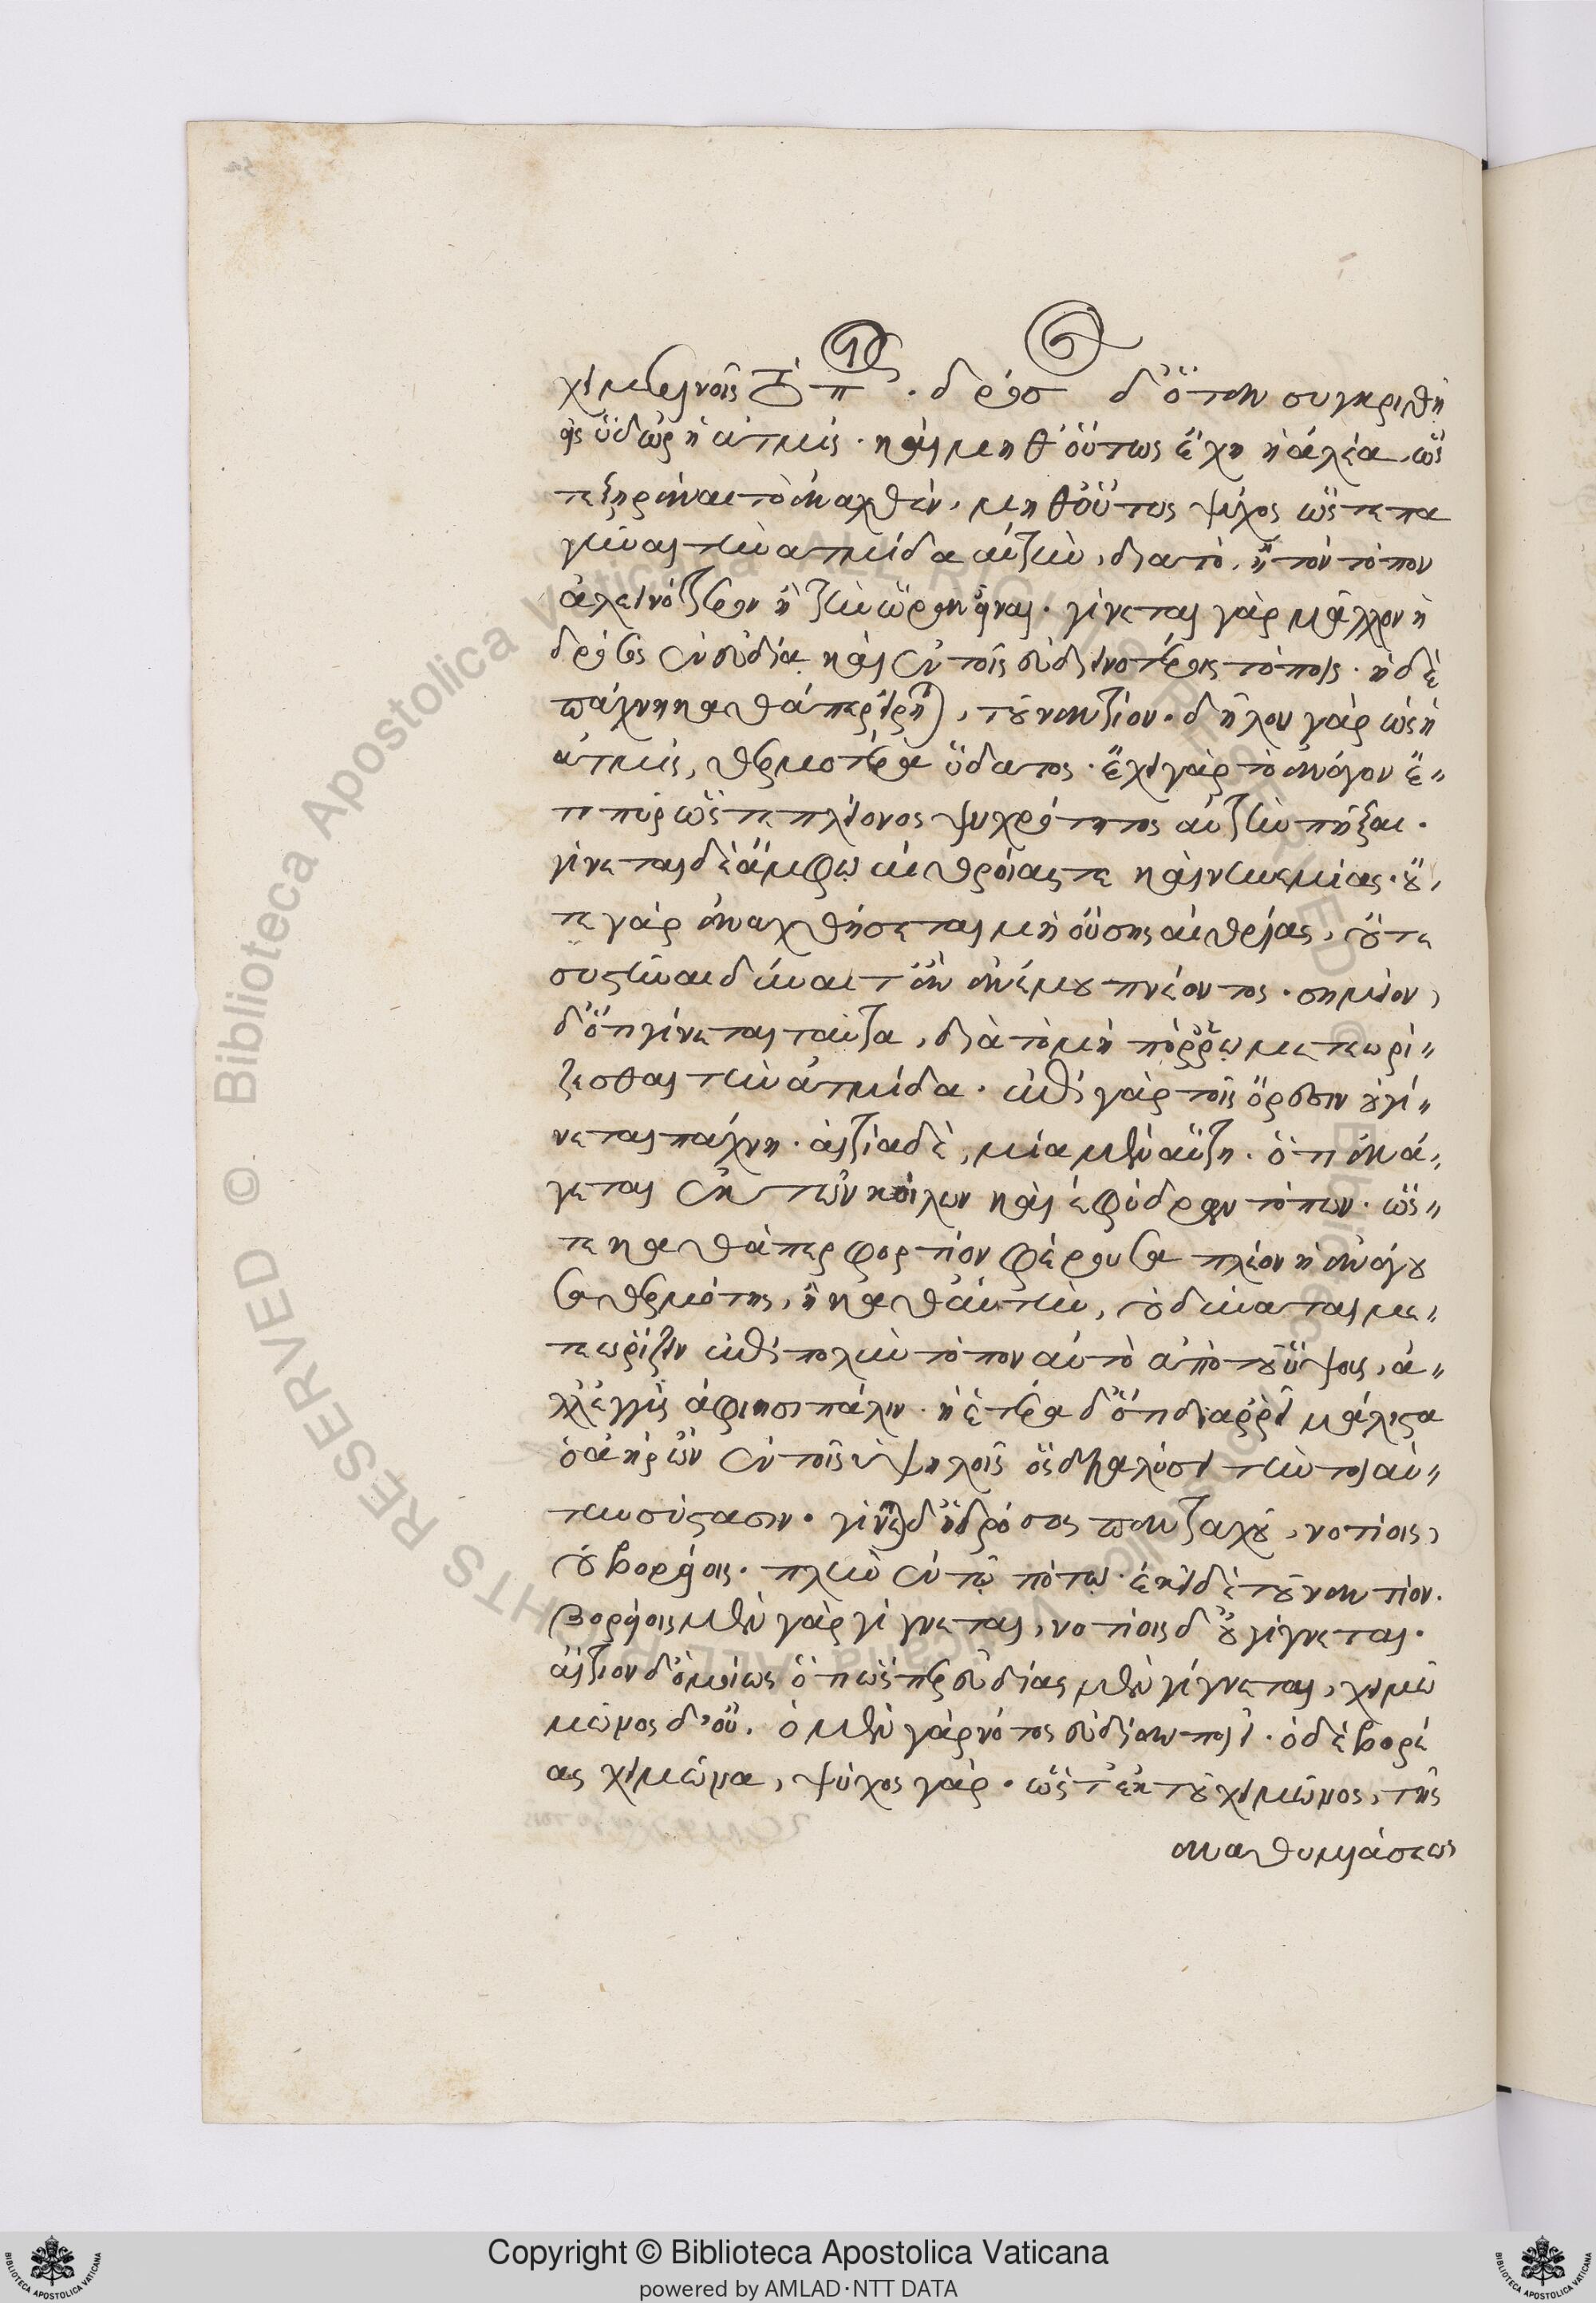 χειμερινοῖς τόποις. δρόσος δ' ὅταν συγκριθῇ
εἰς ὕδωρ ἡ ἀτμίς. καὶ μήθ' οὕτως ἔχῃ ἡ ἀλέα, ὥς
τε ξηράναι τὸ ἀναχθέν, μήθ' οὕτως ψύχος ὥς τε πα
γῆναι τὴν ἀτμίδα αὐτὴν, διὰ τὸ, ἢ τὸν τόπον
ἀλεεινότερον ἢ τὴν ὥραν εἶναι. γίνεται γὰρ μᾶλλον ἡ
δρόσος ἐν εὐδίᾳ καὶ ἐν τοῖς εὐδεινοτέροις τόποις. ἡ δὲ
πάχνη καθάπερ εἴρηται, τοὐναντίον. δῆλον γὰρ ὡς ἡ
ἀτμὶς, θερμοτέρα ὕδατος. ἔχει γὰρ τὸ ἀνάγον ἔ-
τι πῦρ ὥς τε πλείονος ψυχρότητος αὐτὴν πῆξαι.
γίνεται δὲ ἄμφω αἰθρίας τε καὶ νηνεμίας. οὔ
τε γὰρ ἀναχθήσεται μὴ οὔσης αἰθρίας, οὔτε
συστῆναι δύναιτ' ἂν ἀνέμου πνέοντος. σημεῖον
δ' ὅτι γίνεται ταῦτα, διὰ τὸ μὴ πόρρω μετεωρί-
ζεσθαι τὴν ἀτμίδα. ἐπὶ γὰρ τοῖς ὄρεσιν οὐ γί-
νεται πάχνη. αἰτία δὲ, μία μὲν αὕτη. ὅτι ἀνά-
γεται ἐκ τῶν κοίλων καὶ ἐφύδρων τόπων. ὥς-
τε καθάπερ φορτίον φέρουσα πλέον ἡ ἀνάγου
σα θερμότης, ἢ καθ' αὑτὴν, οὐ δύναται με-
τεωρίζειν ἐπὶ πολὺν τόπον αὐτὸ ἀπὸ τοῦ ὕψους, ἀ-
λλ' ἐγγὺς ἀφίησι πάλιν. ἡ ἑτέρα δ' ὅτι διαρρεῖ μάλιστα
ὁ ἀὴρ ὢν ἐν τοῖς ὑψηλοῖς ὃς διαλύει τὴν τοιαύ-
την σύστασιν. γίνεται δ' ἡ δρόσος πανταχοῦ, νοτίοις,
οὐ βορείοις. πλὴν ἐν τῷ πόντῳ. ἐκεῖ δὲ τοὐναντίον.
βορείοις μὲν γὰρ γίγνεται, νοτίοις δ' οὐ γίγνεται.
αἴτιον δ' ὁμοίως ὅτι ὥσπερ εὐδίας μὲν γίγνεται, χειμῶ
μῶνος δ' οὔ. ὁ μὲν γὰρ νότος εὐδίαν ποιεῖ. ὁ δὲ βορέ
ας χειμῶνα, ψύχος γάρ. ὥς τ' ἐκ τοῦ χειμῶνος, τῆς
ἀναθυμιάσεως